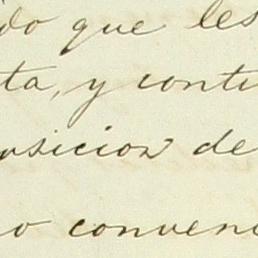 ido que les
ta, y conti
osicion de
no conveni